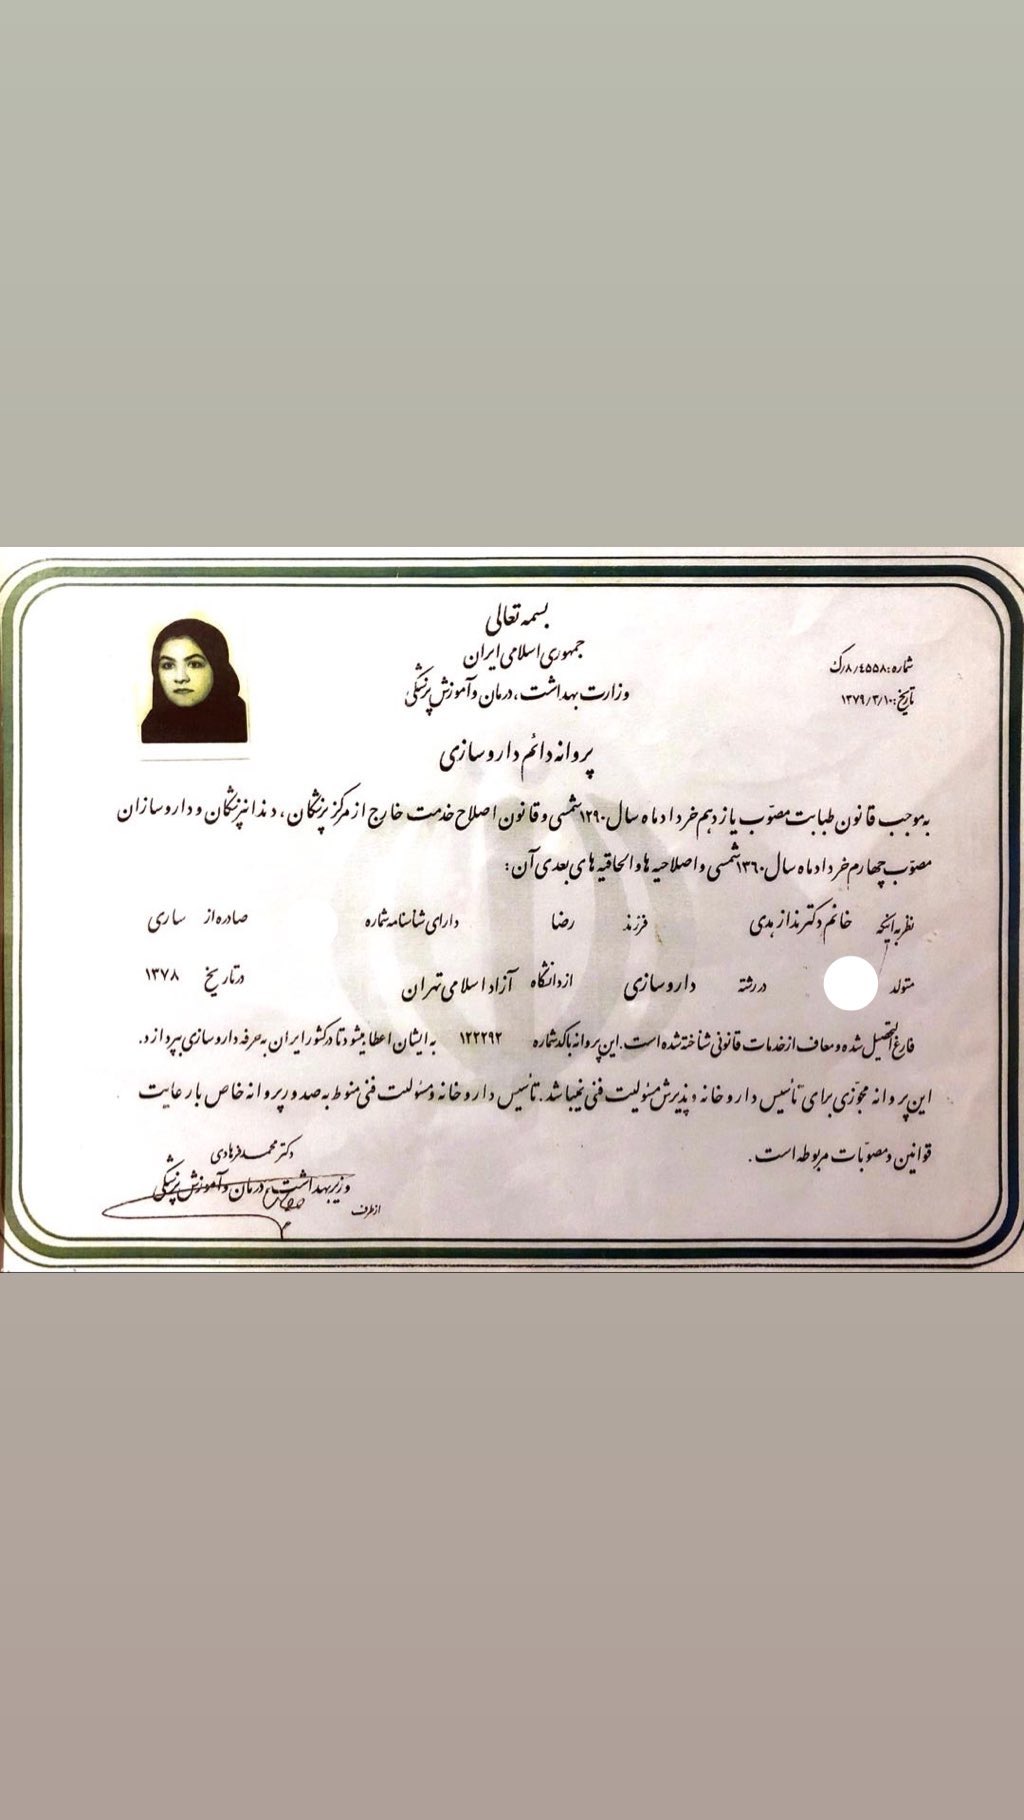 بسمه تعالی
جمهوری اسلامی ایران
وزارت بهداشت، درمان و آموزش پزشکی
شماره: ۸٫۴۵۵۸٫رک
تاریخ: ۱۳۷۹/۳/۱۰
پروانه دائم داروسازی
به موجب قانون طبابت مصوّب یازدهم خرداد ماه سال ۱۲۹۰ شمسی و قانون اصلاح خدمت خارج از مرکز پزشکان، دندانپزشکان و داروسازان
مصوّب چهارم خرداد ماه سال ۱۳۶۰ شمسی و اصلاحیه ها و الحاقیه های بعدی آن:
نظر به اینکه خانم دکتر ندا زهدی فرزند رضا دارای شناسنامه شماره صادره از ساری
متولد در رشته داروسازی از دانشگاه آزاد اسلامی تهران در تاریخ ۱۳۷۸
فارغ التحصیل شده و معاف از خدمات قانونی شناخته شده است. این پروانه با کد شماره ۱۲۲۲۹۲ به ایشان اعطا میشود تا در کشور ایران به حرفه داروسازی بپردازد.
این پروانه مجوّزی برای تأسیس داروخانه و پذیرش مسئولیت فنی نمیباشد. تأسیس داروخانه و مسئولیت فنی منوط به صدور پروانه خاص با رعایت
قوانین و مصوّبات مربوطه است.
دکتر محمد فرهادی
وزیر بهداشت، درمان و آموزش پزشکی
از طرف